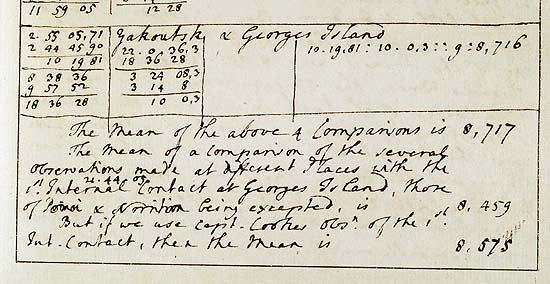 11 59 05 12 28
2 55 05,71 Yakoutsk & Georges Island
2 44 45 90 22. 0 36,3 10.19,81 : 10.0,3 :: 9 : 8,716
10 19 81 18 36 28
8 38 36 3 24 08,3
9 57 52 3 14 8
18 36 28 10 0,3
The Mean of the above 4 Comparisons is 8,717
The Mean of a comparison of the several
observations made at different Places with the
21.44.02
1st Internal Contact at Georges Island, those
of & Norriton being excepted, is 8,459
But if we use Capt. Cookes Obsn. of the 1st
Int. Contact, then the Mean is 8,575